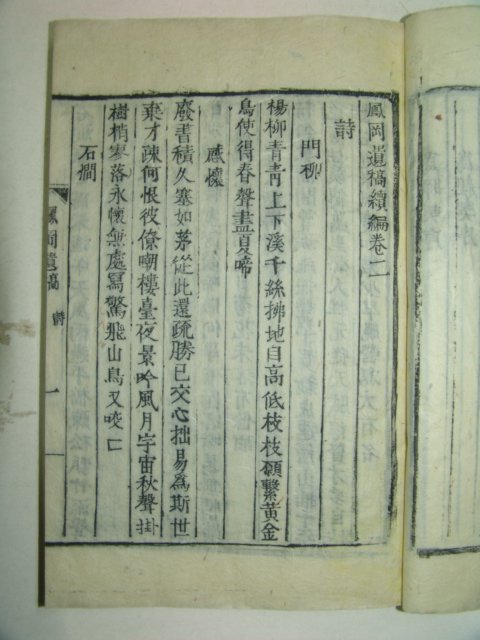 鳳岡遺稿續編卷二
詩
門柳
楊柳青青上下溪千絲拂地自高低枝枝願繫黃金
鳥使得春聲盡夏啼
感懷
廢書積久塞如茅從此還疏勝已交心拙易為斯世
棄才疎何恨彼僚嘲樓臺夜景吟風月宇宙秋聲掛
樹梢寥落永懷無處寫驚飛山鳥又咬口
石澗
鳳岡遺稿 詩 一